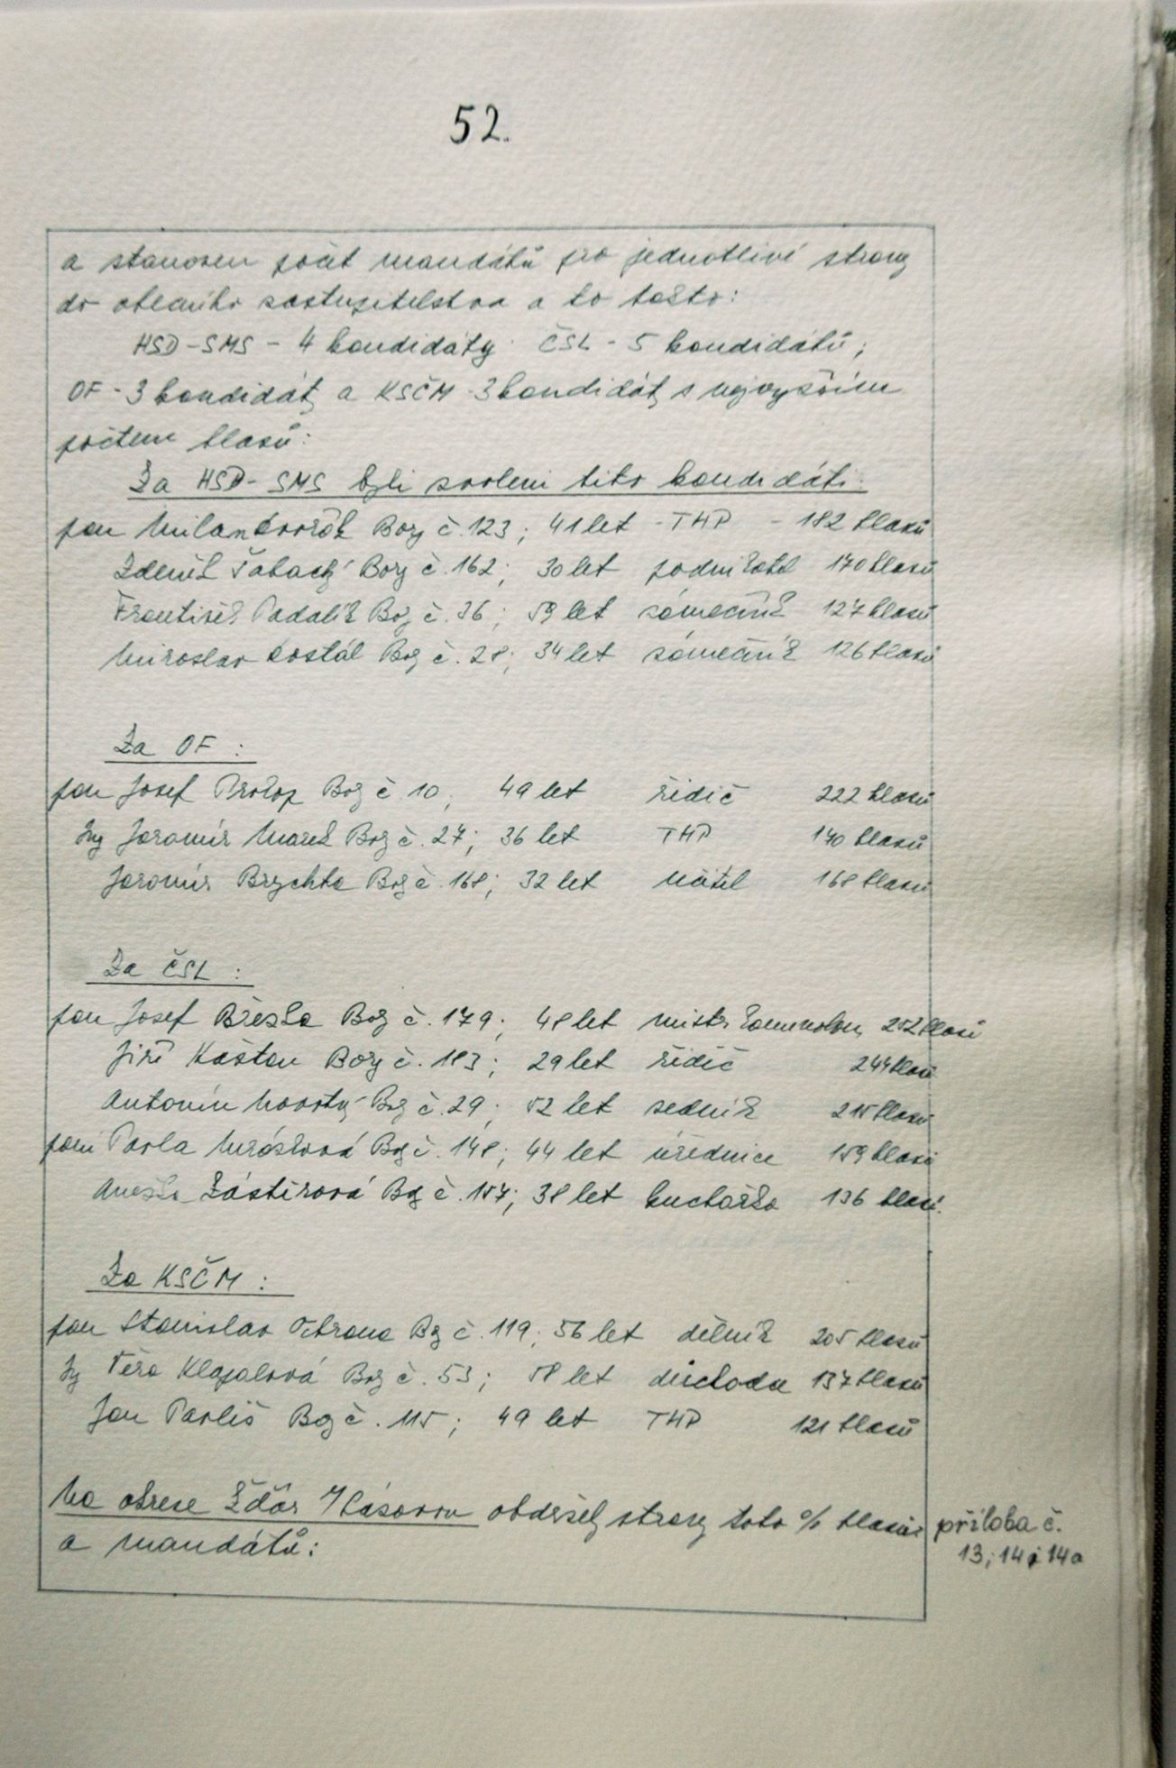 52.
a stanoven počet mandátů pro jednotlivé strany
do obecního zastupitelstva a to takto:
HSD-SMS - 4 kandidáty ČSL - 5 kandidátů;
OF - 3 kandidáty a KSČM - 3 kandidáty s nejvyšším
počtem hlasů:
Za HSD-SMS byli zvoleni tito kandidáti:
pan Milan Dvořák Bory č. 123; 41 let - THP - 182 hlasů
Zdeněk Bory č. 162; 30 let podnikatel 170 hlasů
František Padalík Bory č. 36; 59 let zámečník 127 hlasů
Miroslav Dostál Bory č. 28; 34 let zámečník 126 hlasů
Za OF:
pan Josef Prokop Bory č 10; 49 let řidič 222 hlasů
Ing Jaromír Marek Bory č. 27; 36 let THP 170 hlasů
Jaromír Brychta Bory č. 168; 32 let učitel 168 hlasů
Za ČSL:
pan Josef Březka Bory č. 179; 48 let mistr 252 hlasů
Jiří Kaštan Bory č. 183; 29 let řidič 244 hlasů
Antonín Novotný Bory č. 29; 52 let zedník 215 hlasů
paní Pavla Bory č. 148; 44 let úřednice 159 hlasů
Anežka Zástěrová Bory č. 157; 38 let kuchařka 136 hlasů
Za KSČM:
pan Stanislav Ochrana Bory č. 119; 56 let dělník 205 hlasů
Ing Věra Klapalová Bory č. 53; 58 let důchodce 137 hlasů
Jan Pavliš Bory č. 115; 49 let THP 121 hlasů
Na okrese Žďár n/Sázavou obdržely strany toto % hlasů příloha č.
a mandátů: 13; 14; 14a